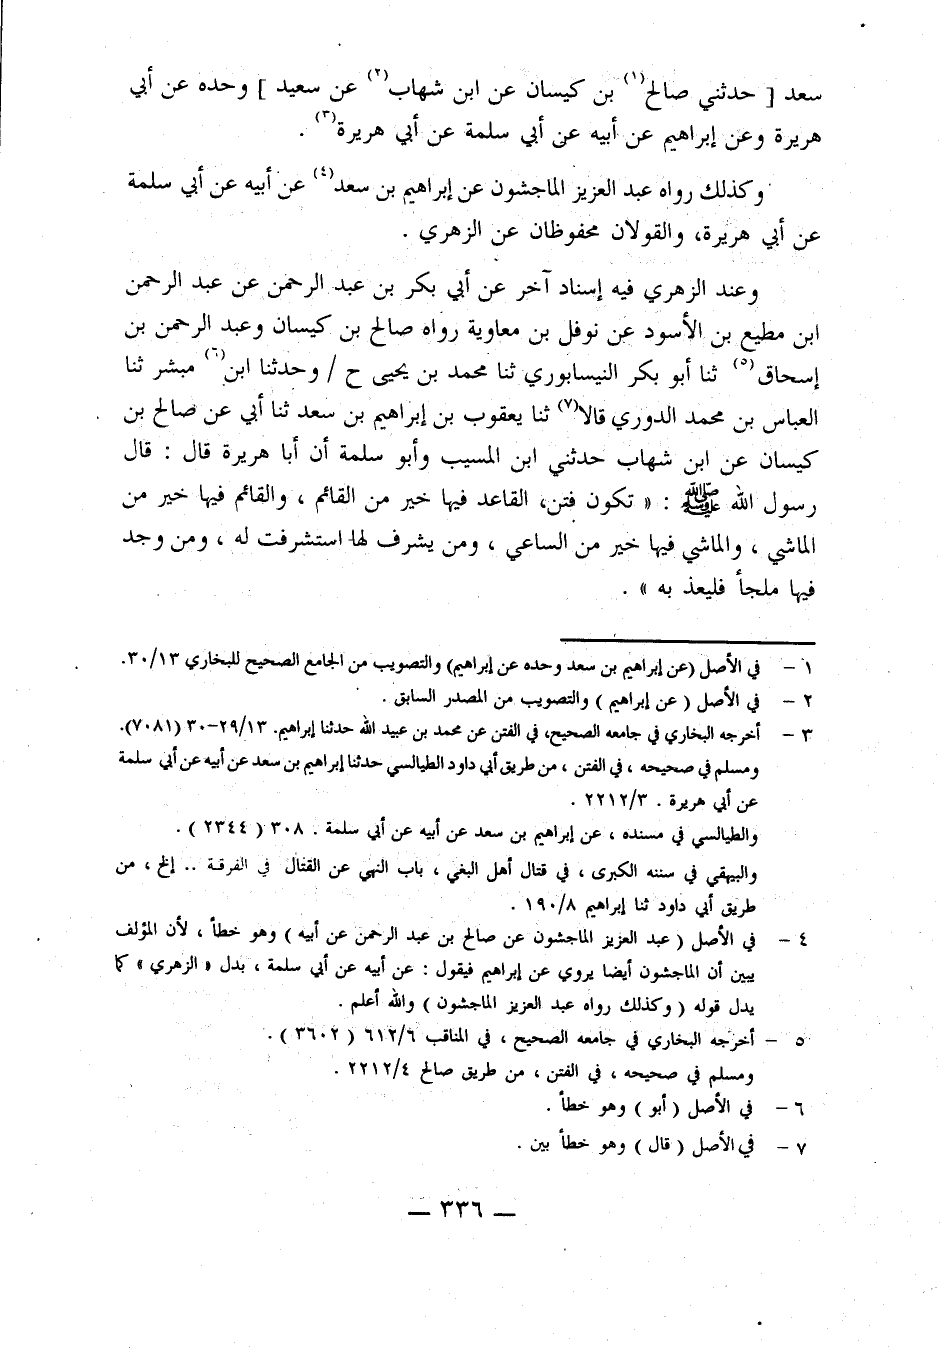 سعد [ حدثني صالح(١) بن كيسان عن ابن شهاب(٢) عن سعيد ] وحده عن أبي
هريرة وعن إبراهيم عن أبيه عن أبي سلمة عن أبي هريرة(٣) .
وكذلك رواه عبد العزيز الماجشون عن إبراهيم بن سعد(٤) عن أبيه عن أبي سلمة
عن أبي هريرة، والقولان محفوظان عن الزهري .
وعند الزهري فيه إسناد آخر عن أبي بكر بن عبد الرحمن عن عبد الرحمن
ابن مطيع بن الأسود عن نوفل بن معاوية رواه صالح بن كيسان وعبد الرحمن بن
إسحاق(٥) ثنا أبو بكر النيسابوري ثنا محمد بن يحيى ح / وحدثنا ابن(٦) مبشر ثنا
العباس بن محمد الدوري قالا(٧) ثنا يعقوب بن إبراهيم بن سعد ثنا أبي عن صالح بن
كيسان عن ابن شهاب حدثني ابن المسيب وأبو سلمة أن أبا هريرة قال : قال
رسول الله ﷺ : « تكون فتن، القاعد فيها خير من القائم ، والقائم فيها خير من
الماشي ، والماشي فيها خير من الساعي ، ومن يشرف لها استشرفت له ، ومن وجد
فيها ملجأ فليعذ به » .
١ – في الأصل (عن إبراهيم بن سعد وحده عن إبراهيم) والتصويب من الجامع الصحيح للبخاري ٣٠/١٣.
٢ – في الأصل ( عن إبراهيم ) والتصويب من المصدر السابق .
٣ – أخرجه البخاري في جامعه الصحيح، في الفتن عن محمد بن عبيد الله حدثنا إبراهيم. ٢٩/١٣–٣٠ (٧٠٨١).
ومسلم في صحيحه ، في الفتن ، من طريق أبي داود الطيالسي حدثنا إبراهيم بن سعد عن أبيه عن أبي سلمة
عن أبي هريرة . ٢٢١٢/٣ .
والطيالسي في مسنده ، عن إبراهيم بن سعد عن أبيه عن أبي سلمة . ٣٠٨ ( ٢٣٤٤ ) .
والبيهقي في سننه الكبرى ، في قتال أهل البغي ، باب النهي عن القتال في الفرقة .. إلخ ، من
طريق أبي داود ثنا إبراهيم ١٩٠/٨ .
٤ – في الأصل ( عبد العزيز الماجشون عن صالح بن عبد الرحمن عن أبيه ) وهو خطأ ، لأن المؤلف
يبين أن الماجشون أيضا يروي عن إبراهيم فيقول : عن أبيه عن أبي سلمة ، بدل « الزهري » كما
يدل قوله ( وكذلك رواه عبد العزيز الماجشون ) والله أعلم .
٥ – أخرجه البخاري في جامعه الصحيح ، في المناقب ٦١٢/٦ ( ٣٦٠٢ ) .
ومسلم في صحيحه ، في الفتن ، من طريق صالح ٢٢١٢/٤ .
٦ – في الأصل ( أبو ) وهو خطأ .
٧ – في الأصل ( قال ) وهو خطأ بين .
— ٣٣٦ —